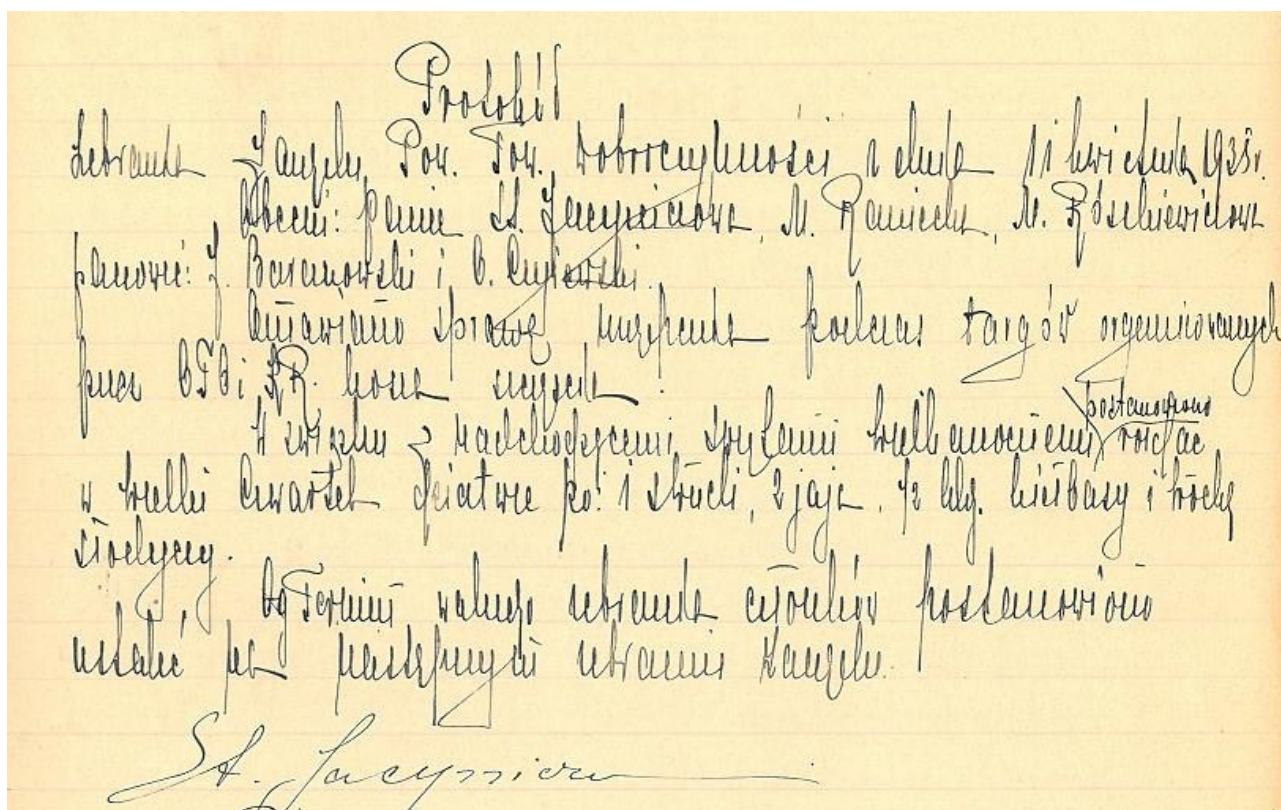 Protokół
Zebrania Zarządu Pow. Tow. Dobroczynności z dnia 11 kwietnia 1938r.
Obecni: Panie St. Jacyniczowa, M. Raniecka, M. Różekiewiczowa
panowie: J. Baranowski i O.
Omawiano sprawę urządzenia podczas targów organizowanych
przez OTO i KR. kosza szczęścia.
W związku z nadchodzącemi świętami wielkanocnemi postanowiono rozdać
w Wielki Czwartek dziatwie po: 1 strucli, 2 jaja, 1/2 klg. kiełbasy i trochę
słodyczy.
Termin walnego zebrania członków postanowiono
ustalić na następnym zebraniu Zarządu.
St.